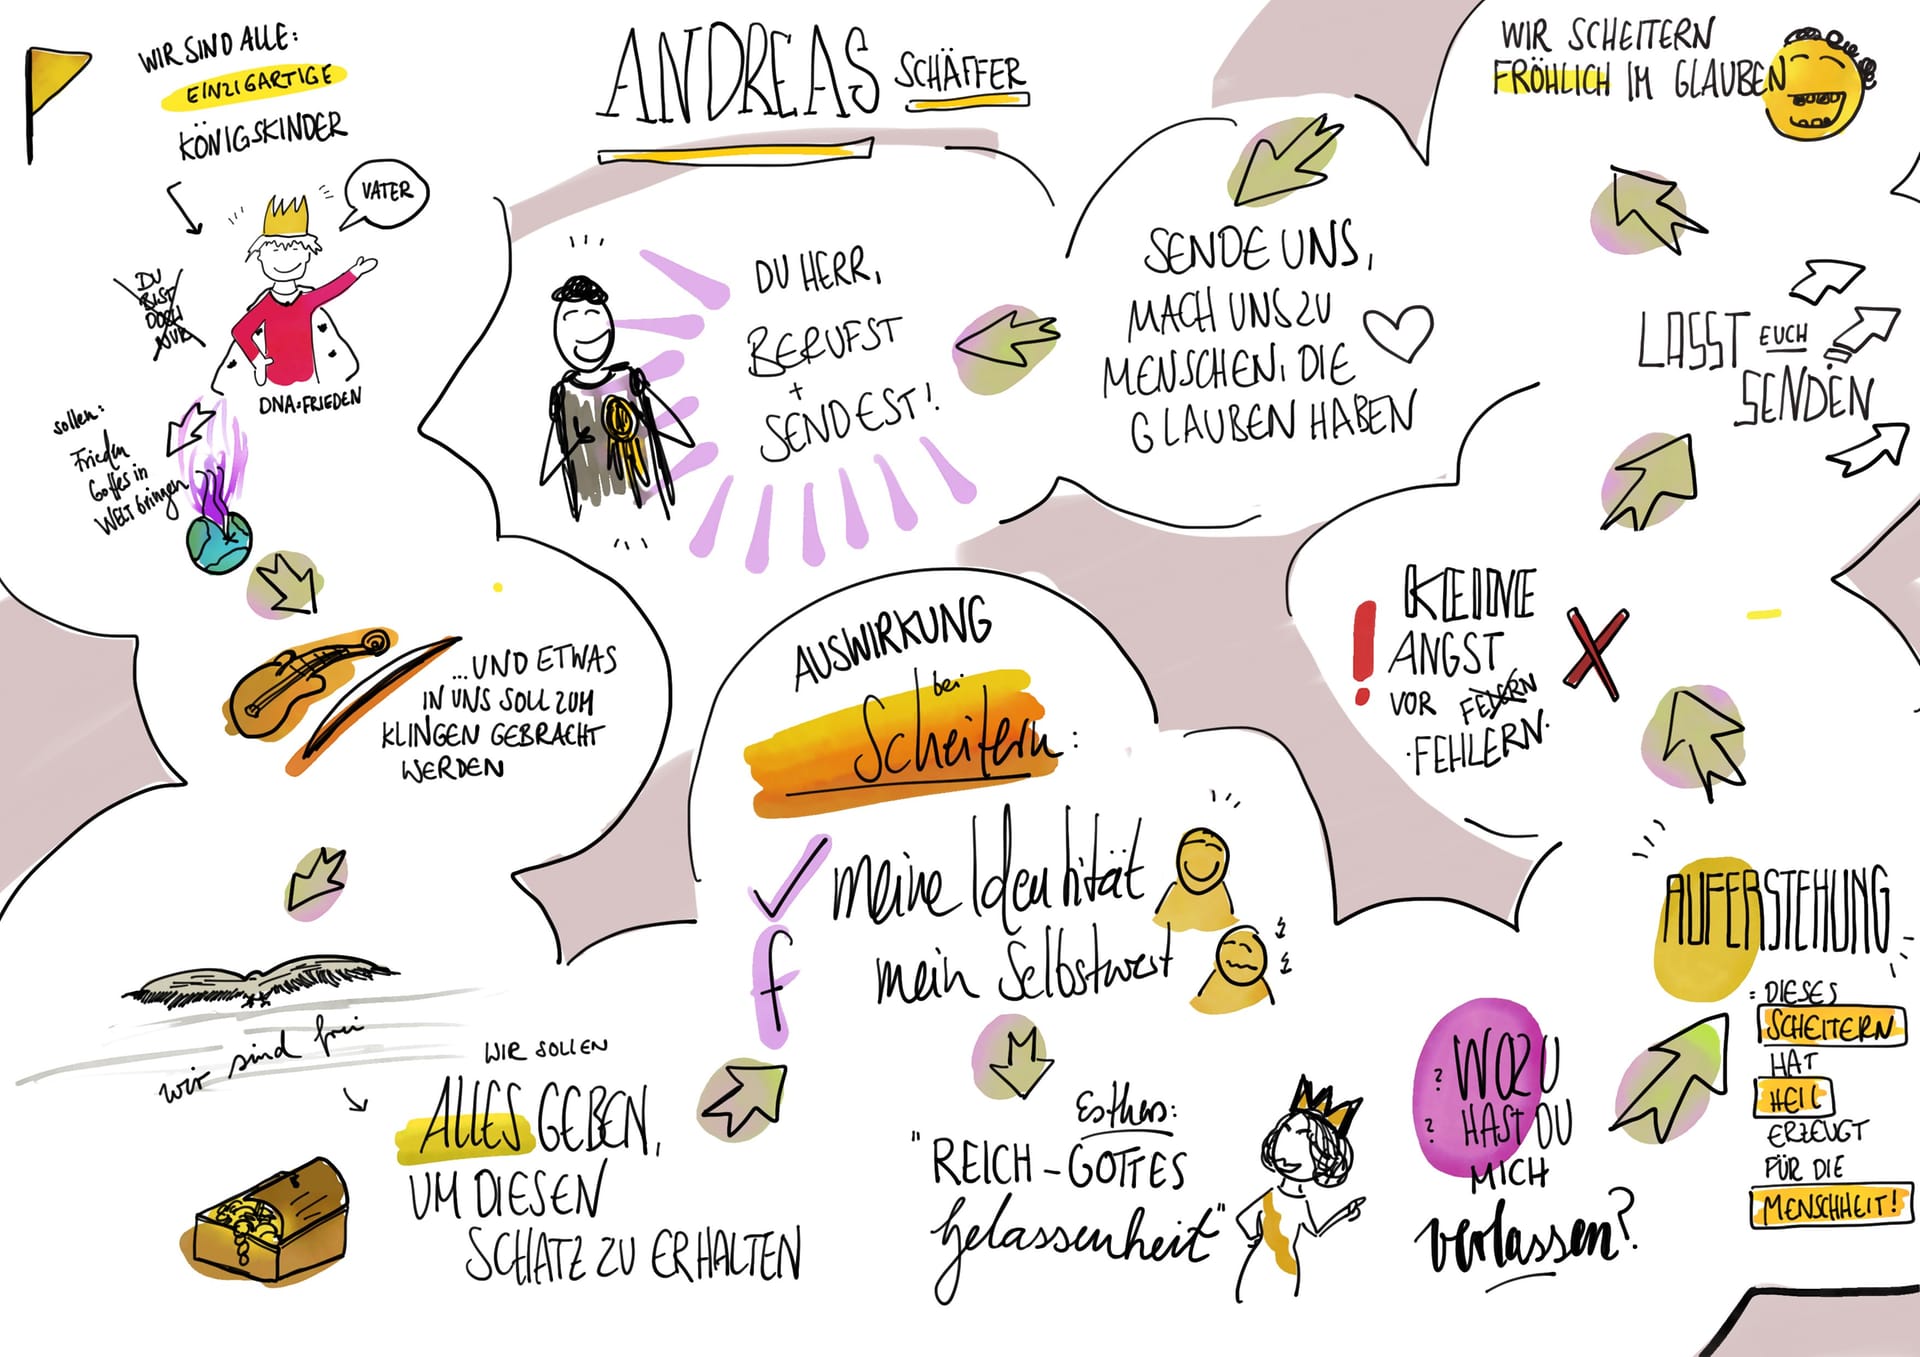 ANDREAS SCHÄFFER
WIR SIND ALLE:
EINZIGARTIGE
KÖNIGSKINDER
VATER
DU
BIST
DOCH
NUR
DNA=FRIEDEN
sollen:
Frieden
Gottes in
Welt bringen
...UND ETWAS
IN UNS SOLL ZUM
KLINGEN GEBRACHT
WERDEN
wir sind frei
WIR SOLLEN
ALLES GEBEN,
UM DIESEN
SCHATZ ZU ERHALTEN
AUSWIRKUNG
bei
Scheitern:
meine Identität
f mein Selbstwert
Esther:
"REICH-GOTTES
Gelassenheit"
? WOZU
? HAST DU
MICH
verlassen?
AUFERSTEHUNG
= DIESES
SCHEITERN
HAT
HEIL
ERZEUGT
FÜR DIE
MENSCHHEIT!
! KEINE
ANGST
VOR FEDERN
·FEHLERN·
LASST EUCH
SENDEN
WIR SCHEITERN
FRÖHLICH IM GLAUBEN
SENDE UNS,
MACH UNS ZU
MENSCHEN, DIE
GLAUBEN HABEN
DU HERR,
BERUFST
+
SENDEST!